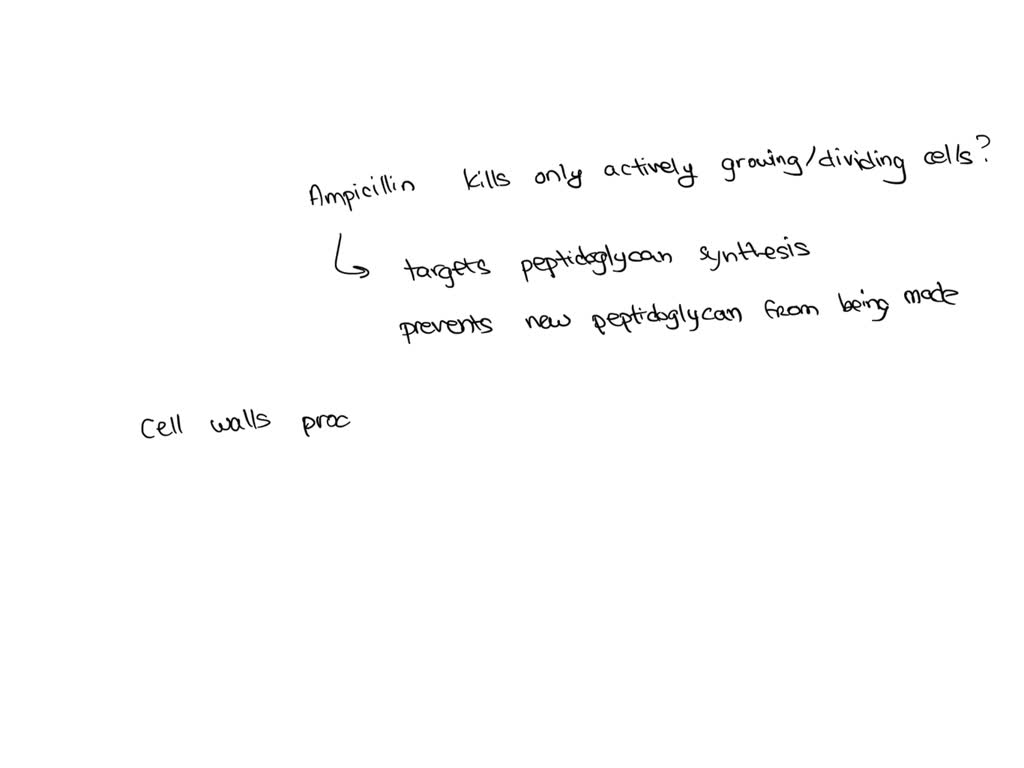 Ampicillin kills only actively growing/dividing cells?
targets peptidoglycan synthesis
prevents new peptidoglycan from being made
Cell walls proc